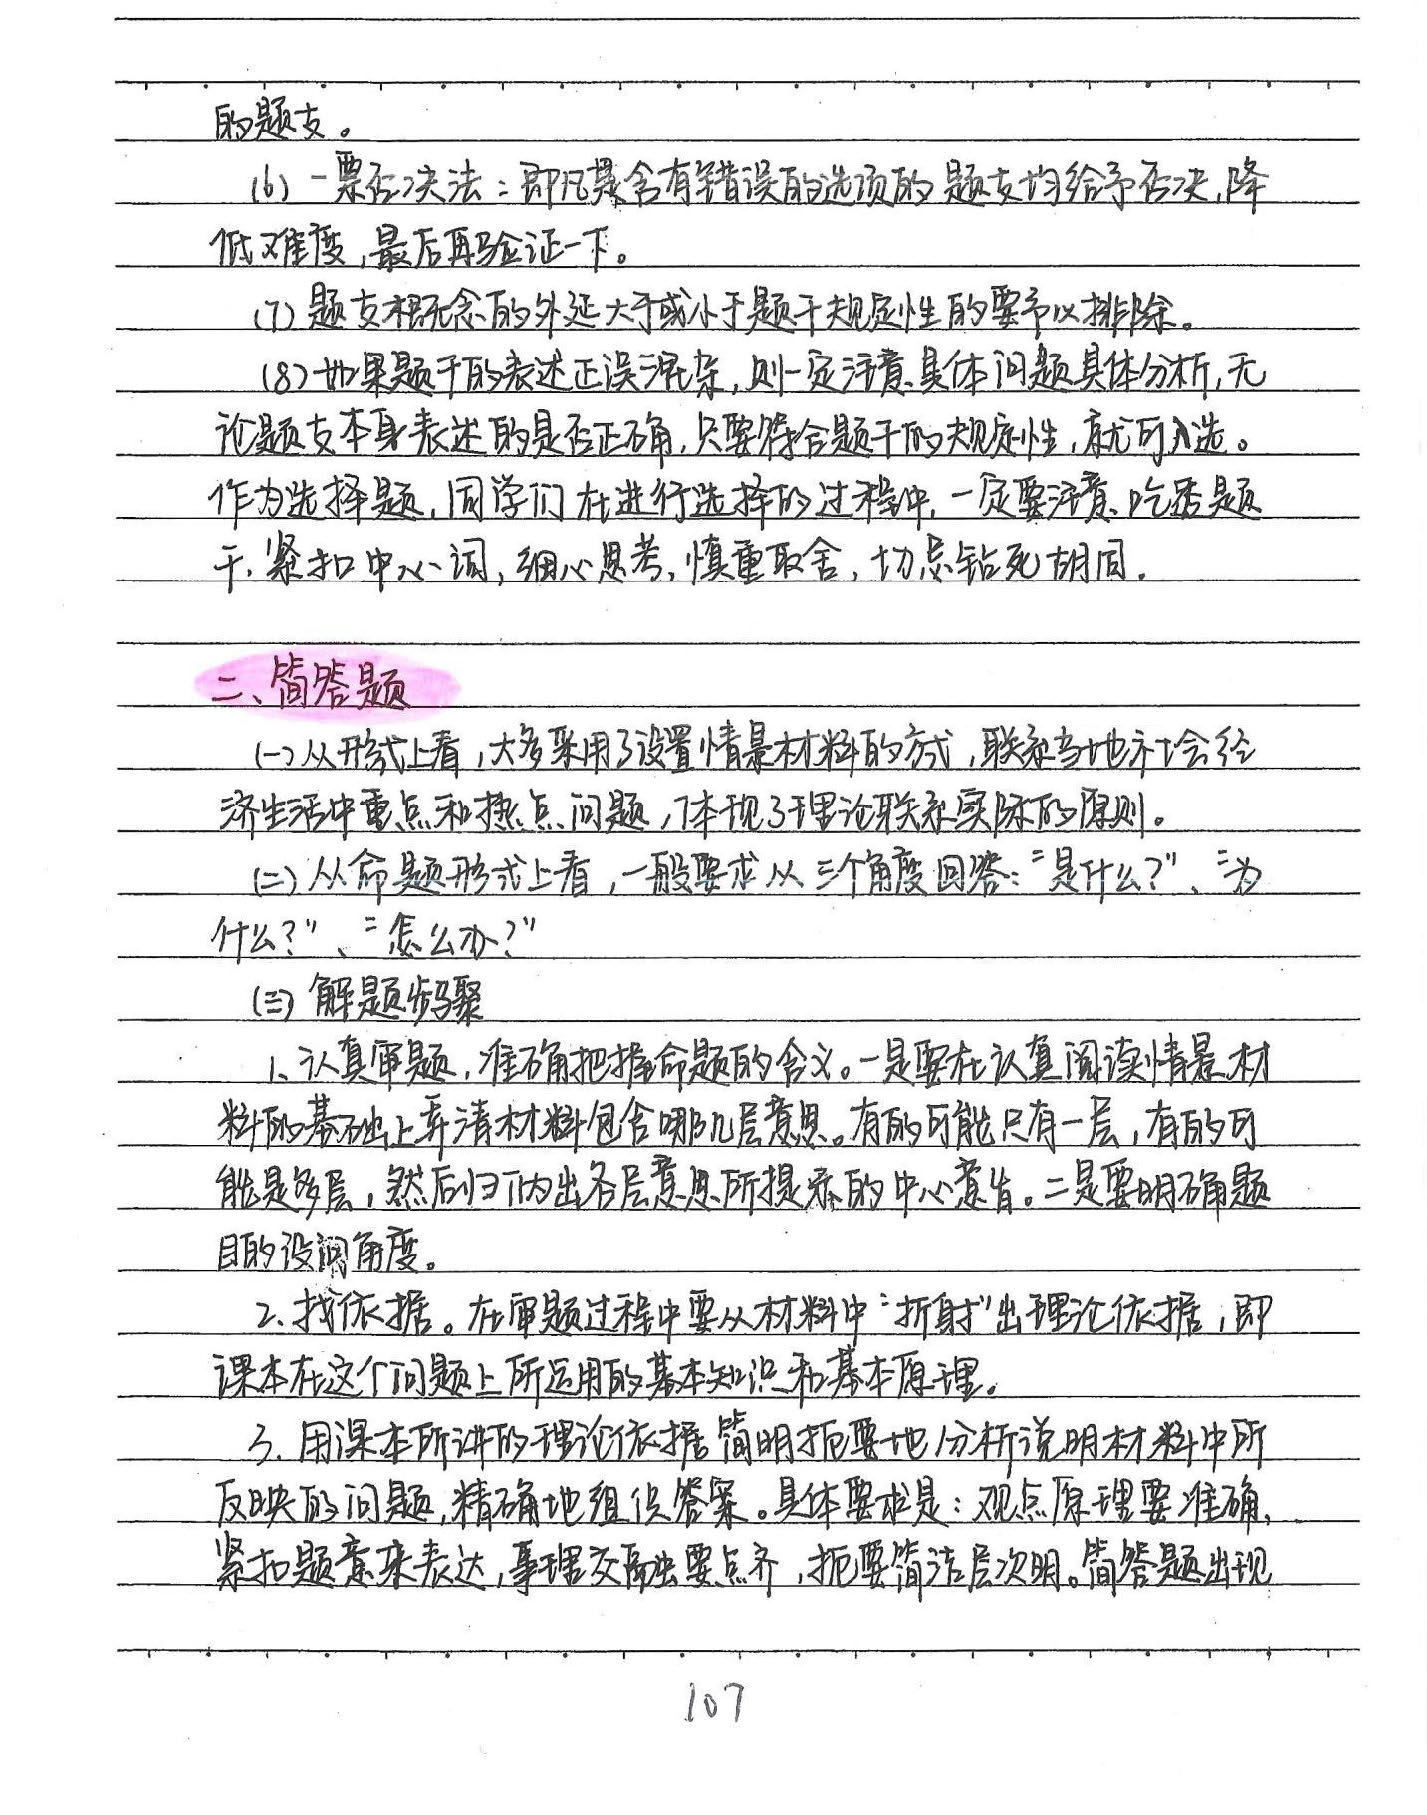 的题支。
(6) 一票否决法：即凡是含有错误的选项的题支均给予否决，降
低难度，最后再验证一下。
(7) 题支概念的外延大于或小于题干规定性的要予以排除。
(8) 如果题干的表述正误混杂，则一定注意具体问题具体分析，无
论题支本身表述的是否正确，只要符合题干的规定性，就可入选。
作为选择题，同学们在进行选择的过程中，一定要注意吃透题
干，紧扣中心词，细心思考，慎重取舍，切忌钻死胡同。
二、简答题
(一) 从形式上看，大多采用了设置情景材料的方式，联系当地社会经
济生活中重点和热点问题，体现了理论联系实际的原则。
(二) 从命题形式上看，一般要求从三个角度回答：“是什么？”、“为
什么？”、“怎么办？”
(三) 解题步骤
1、认真审题，准确把握命题的含义。一是要在认真阅读情景材
料的基础上弄清材料包含哪几层意思。有的可能只有一层，有的可
能是多层，然后归纳出各层意思所提示的中心意旨。二是要明确题
目的设问角度。
2、找依据。在审题过程中要从材料中“折射”出理论依据，即
课本在这个问题上所运用的基本知识和基本原理。
3、用课本所讲的理论依据简明扼要地分析说明材料中所
反映的问题，精确地组织答案。具体要求是：观点原理要准确，
紧扣题意来表达，事理交融要点齐，扼要简洁层次明。简答题出现
107